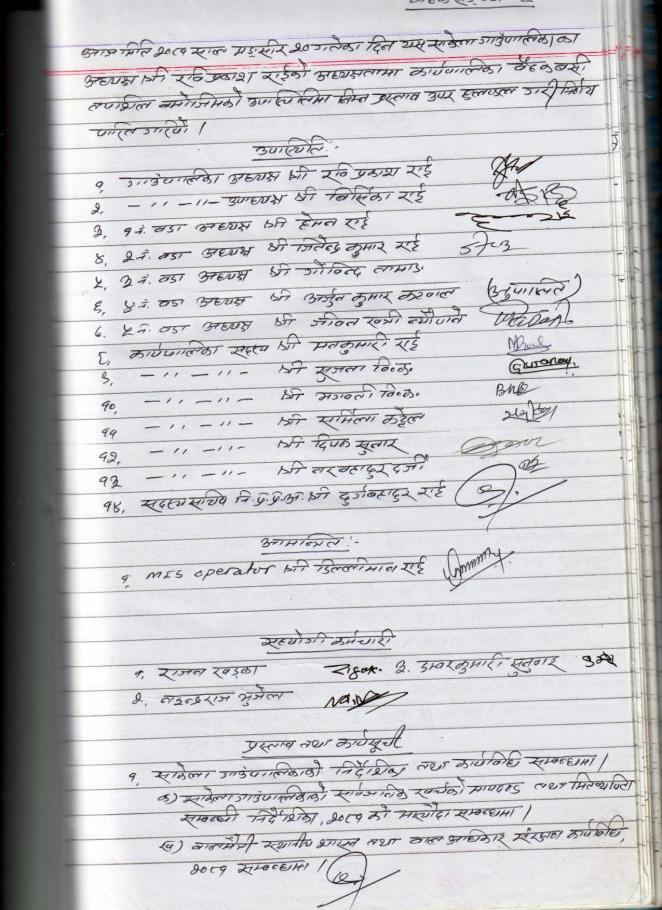 आज मिति २०८१ साल मङ्सिर २० गतेका दिन यस साकेला गाउँपालिका का
अध्यक्ष श्री रवि प्रकाश राईको अध्यक्षतामा कार्यपालिका बैठक बसी
तपाशिल बमोजिमको उपस्थितिमा निम्न प्रस्ताव उपर छलफल गरी निर्णय
पारित गरियो ।
उपस्थिति :-
१. गाउँपालिका अध्यक्ष श्री रवि प्रकाश राई
२. - '' - ''- उपाध्यक्ष श्री बिर्सिका राई
३. १ नं. वडा अध्यक्ष श्री हेमन राई
४. २ नं. वडा अध्यक्ष श्री जितेन्द्र कुमार राई
५. ३ नं. वडा अध्यक्ष श्री गोविन्द तामाङ
६. ४ नं. वडा अध्यक्ष श्री अर्जुन कुमार करवाल (अनुपस्थित)
७. ५ नं. वडा अध्यक्ष श्री जीवन खत्री न्यौपाने
८. कार्यपालिका सदस्य श्री मनकुमारी राई
९. - '' - ''- श्री सुजता वि.क.
१०. - '' - ''- श्री भगवती वि.क.
११ - '' - ''- श्री सर्मिला कट्टेल
१२. - '' - ''- श्री दिपक सुनार
१३ - '' - ''- श्री नरबहादुर दर्जी
१४. सदस्य सचिव नि.प्र.प्र.अ. श्री दुर्गबहादुर राई
आमन्त्रित :-
१. MIS operator श्री डिल्लीमान राई
सहयोगी कर्मचारी
१. राजन खड्का ३. डम्वरकुमारी सुनुवार
२. नरेन्द्रराज भुजेल
प्रस्ताव तथा कार्यसूची
१. साकेला गाउँपालिकाको निर्देशिका तथा कार्यविधि सम्बन्धमा ।
क) साकेला गाउँपालिकाको सार्वजनिक खर्चको मापदण्ड तथा मितव्ययिता
सम्बन्धी निर्देशिका, २०८१ को मस्यौदा सम्बन्धमा ।
ख) बालमैत्री स्थानीय शासन तथा बाल अधिकार संरक्षण कार्यविधि,
२०८१ सम्बन्धमा ।